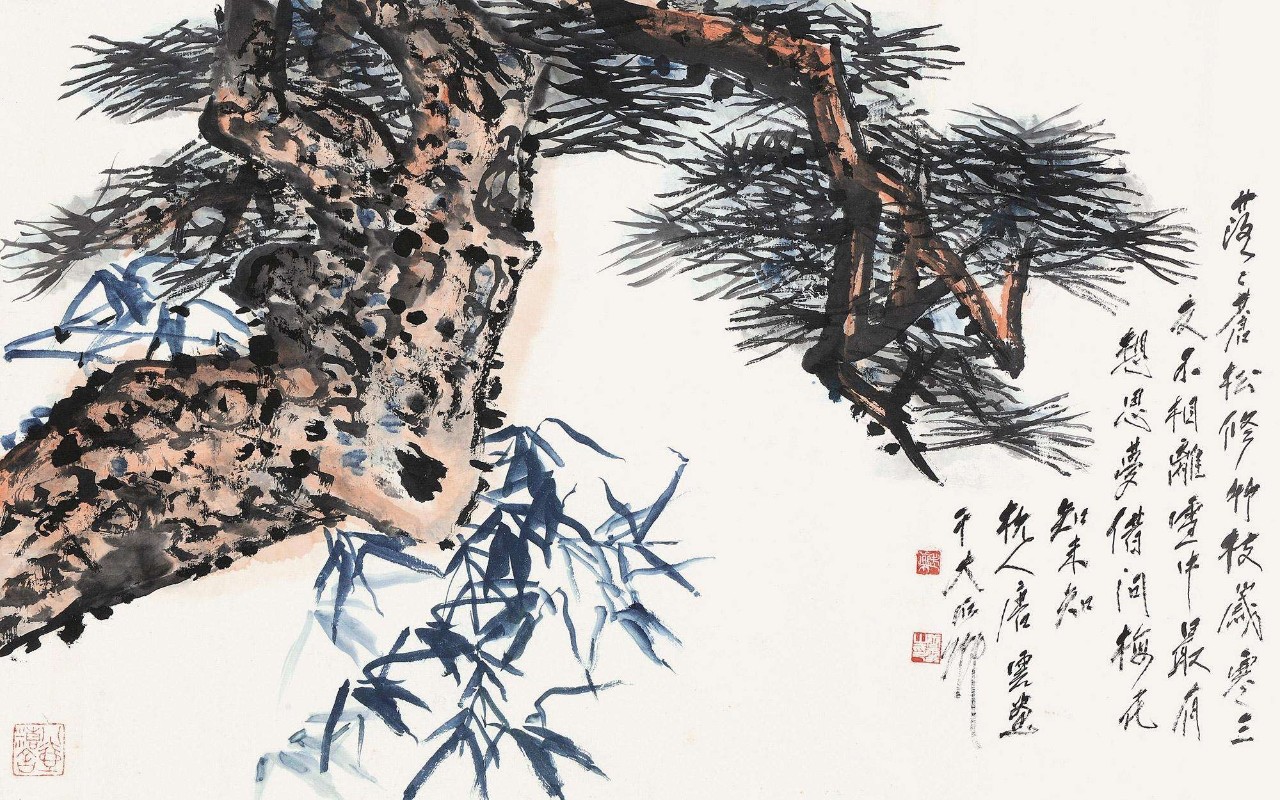 落〻蒼松修竹枝歲寒三
友不相離雪中最有
想思夢借問梅花
知未知
杭人唐雲畫
于大石